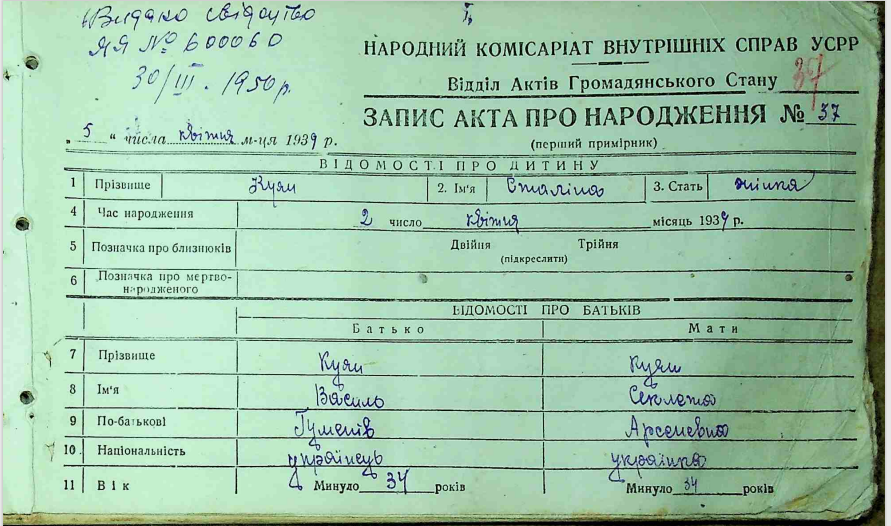 Видано свідоцтво
ЯЯ № 600060
30/III. 1950 р.
НАРОДНИЙ КОМІСАРІАТ ВНУТРІШНІХ СПРАВ УСРР
Відділ Актів Громадянського Стану
37
ЗАПИС АКТА ПРО НАРОДЖЕННЯ № 37
„ 5 “ числа квітня м-ця 1939 р.
(перший примірник)
ВІДОМОСТІ ПРО ДИТИНУ
1 Прізвище Куяи 2. Ім'я Сталіна 3. Стать жінка
4 Час народження 2 число квітня місяць 1939 р.
5 Позначка про близнюків Двійня Трійня
(підкреслити)
6 Позначка про мертвонародженого
ВІДОМОСТІ ПРО БАТЬКІВ
Батько Мати
7 Прізвище
8 Ім'я Василь Секлета
9 По-батькові Арсенєвна
10. Національність українець українка
11 Вік Минуло 34 років Минуло 34 років